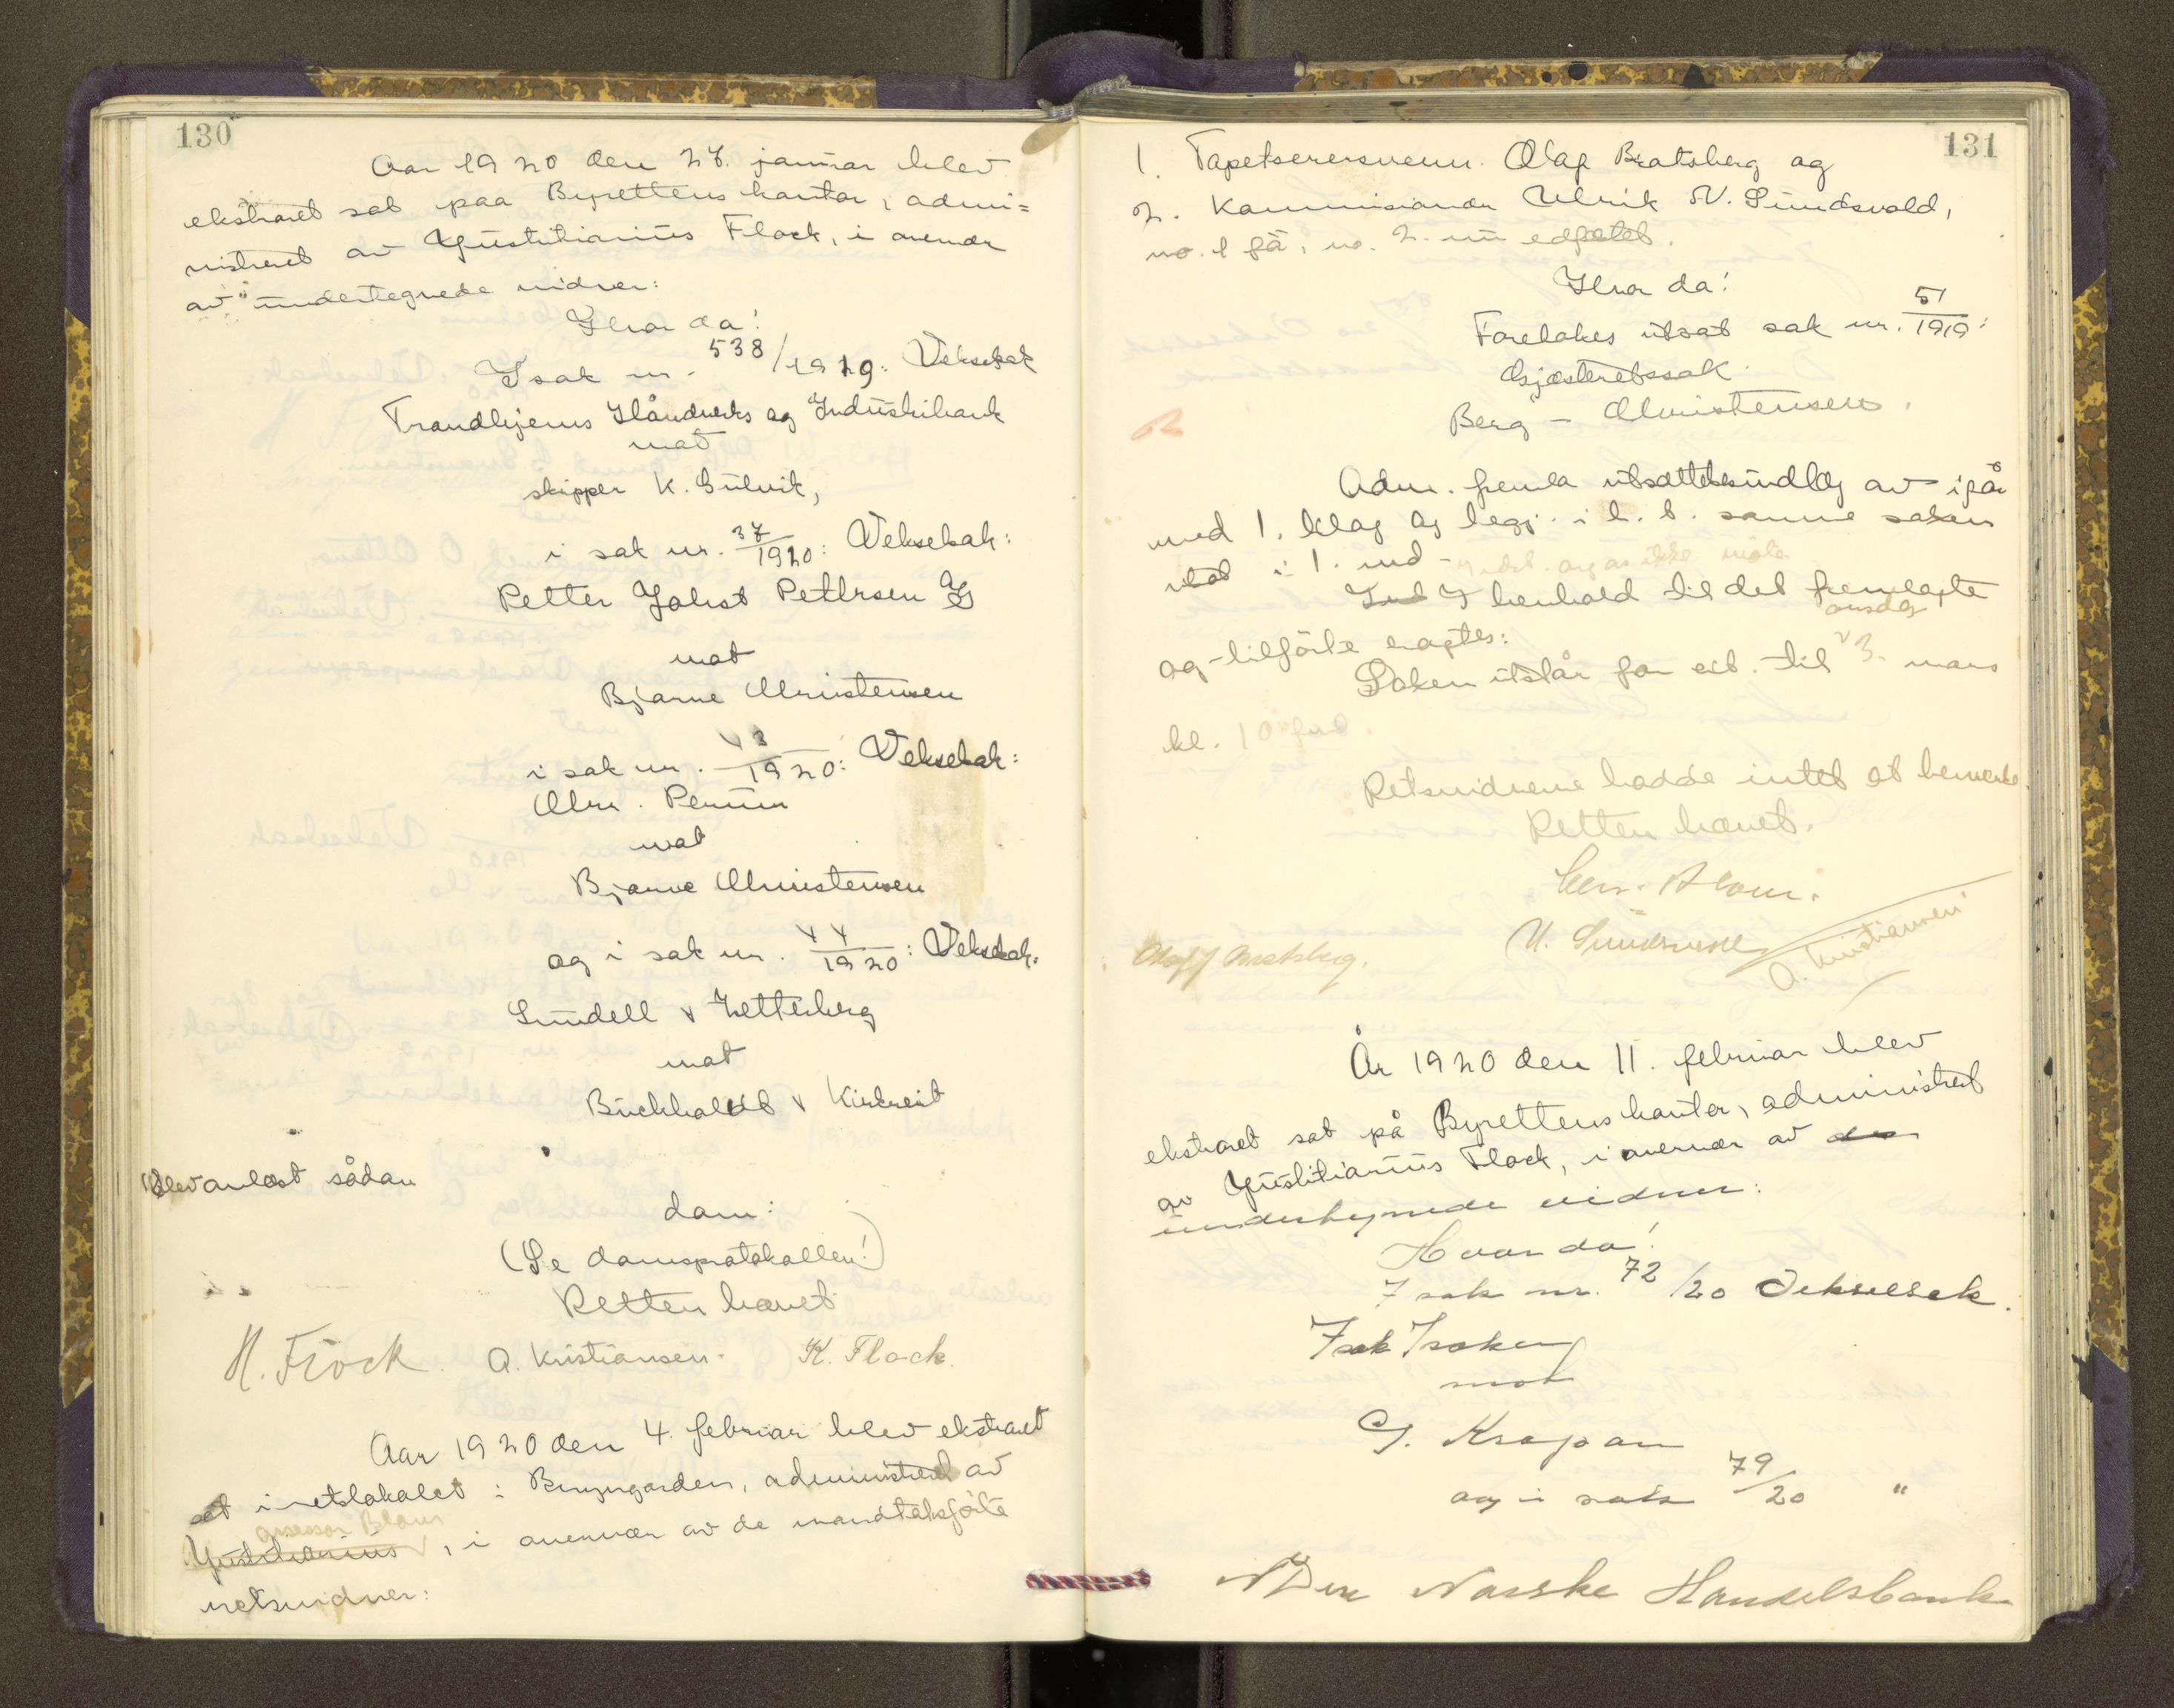 130
Aar 1920 den 28. januar blev
ekstraret sat paa Byrettens kontor, admi=
nistreret av Justitiarius Flock, i overvær
av undertegnede vidner:
Hvor da!
I sak nr. 538/1919: Vekselsak
Trondhjems Håndverks og Industribank
mot
skipper K. Gulvik,
i sak nr. 37/1920: Vekselsak:
Petter Johst Petersen
mot
Bjarne Christensen
i sak nr. 43/1920: Vekselsak:
Chr. Perum
mot
Bjarne Christensen
og i sak nr. 44/1920: Vekselsak:
Lundell & Zetterberg
mot
Buckholdt & Kirkreit
Blev avlæst sådan
dom:
(Se domsprotokollen!)
Retten hævet
H. Flock. A. Kristiansen. K. Flock.
Aar 1920 den 4. februar blev ekstraret
sat i retslokalet i Brungården, administreret av
assessor Blom
Justitiarius, i overvær av de mandtalsførte
retsvidner:
131
1. Tapetserersvenn Olaf Bratsberg og
2. Kommisionær Ulrik N. Sundsvold,
no. 1 få, no. 2. nu edfæstet.
Hvor da!
Foretokes utsat sak nr. 51/1919:
Gjæsteretssak.
Berg - Christensen.
Adm. fremla utsættelsesindlæg av igår
med 1. bilag og begj. i h. t. samme saken
utsat i 1. md - Indst. av. ikke møte.
I henhold til det fremlagte
og tilførte eragtes:
Saken utstår for ext. til onsdag 3. mars
kl. 10 form.
Retsvidnene hadde intet at bemerke.
Retten hævet.
Chr. Blom.
Olaf Bratsberg. U. Sundsvold A. Kristiansen
År 1920 den 11. februar blev
ekstraret sat på Byrettens kontor, administrert
av Justitiarius Flock, i overvær av
undertegnede vidner:
Hvor da!
I sak nr. 72/20 Vekselsak.
Isak Isaksen
mot
G. Kropan
og i sak 79/20 "
Den Norske Handelsbank